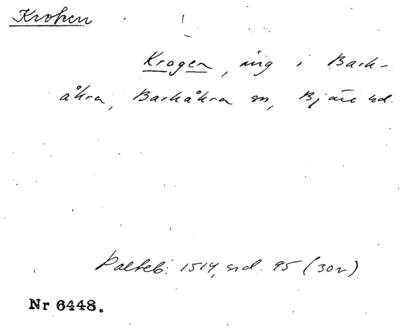 Kroken
Krogen, äng i Bark-
åkra, Barkåkra sn, Bjäre hd.
1514, sid. 95 (30v)
Nr 6448.